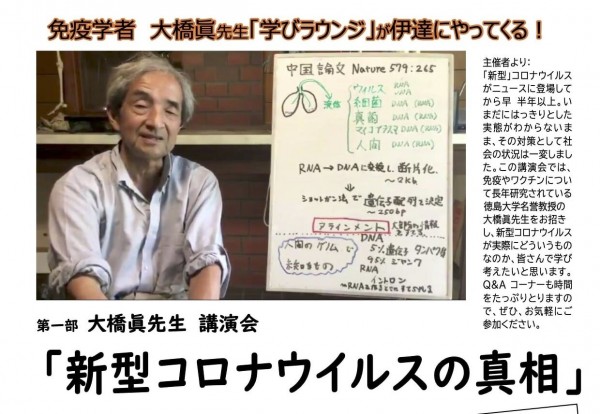 免疫学者 大橋眞先生「学びラウンジ」が伊達にやってくる！
中国論文 Nature 579:265
ウイルス RNA
液体
細菌 DNA (RNA)
真菌 DNA (RNA)
マイコプラズマ DNA (RNA)
人間 DNA (RNA)
RNA → DNAに変換し、断片化
～2kb
ショットガン法で遺伝子配列を決定
～250bp
アラインメント
人間のゲノムで
DNA
5% 遺伝子 タンパク質
95% ジャンク
RNA
イントロン
主催者より:
「新型」コロナウイルス
がニュースに登場して
から早 半年以上。い
まだにはっきりとした
実態がわからないま
ま、その対策として社
会の状況は一変しまし
た。この講演会では、
免疫やワクチンについ
て長年研究されている
徳島大学名誉教授の
大橋眞先生をお招き
し、新型コロナウイルス
が実際にどういうもの
なのか、皆さんで学び
考えたいと思います。
Q&A コーナーも時間
をたっぷりとりますの
で、ぜひ、お気軽にご
参加ください。
第一部 大橋眞先生 講演会
「新型コロナウイルスの真相」